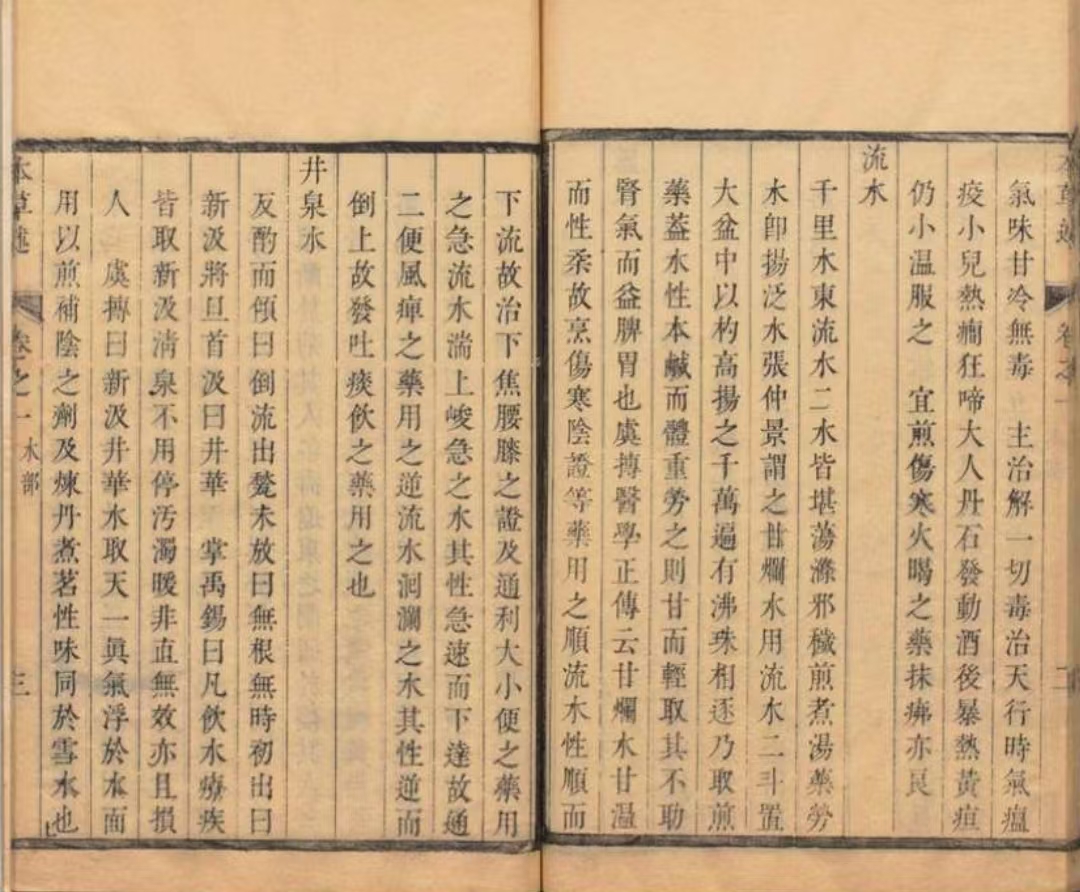 氣味甘冷無毒　主治解一切毒治天行時氣瘟
疫小兒熱癎狂啼大人丹石發動酒後暴熱黃疸
仍小温服之　宜煎傷寒火暍之藥抹疿亦良
流水
千里水東流水二水皆堪蕩滌邪穢煎煮湯藥勞
水卽揚泛水張仲景謂之甘爛水用流水二斗置
大盆中以杓高揚之千萬遍有沸珠相逐乃取煎
藥蓋水性本鹹而體重勞之則甘而輕取其不助
腎氣而益脾胃也虞摶醫學正傳云甘爛水甘温
而性柔故烹傷寒陰證等藥用之順流水性順而
下流故治下焦腰膝之證及通利大小便之藥用
之急流水湍上峻急之水其性急速而下達故通
二便風痺之藥用之逆流水洄瀾之水其性逆而
倒上故發吐痰飲之藥用之也
井泉水
反酌而傾曰倒流出甃未放曰無根無時初出曰
新汲將旦首汲曰井華　掌禹錫曰凡飲水療疾
皆取新汲清泉不用停汚濁暖非直無效亦且損
人　虞摶曰新汲井華水取天一眞氣浮於水面
用以煎補陰之劑及煉丹煮茗性味同於雪水也
本草述　卷之一　水部　三